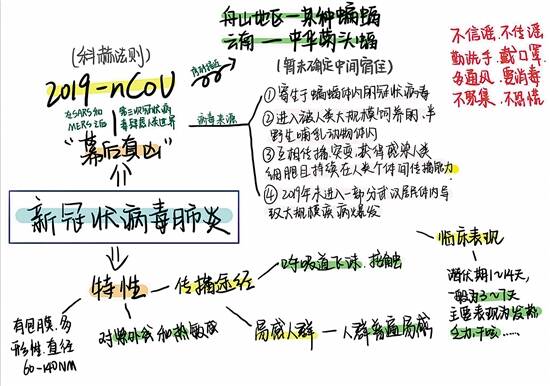 舟山地区一某种蝙蝠
云南一中华菊头蝠
(科赫法则)
序列接近
(暂未确定中间宿住)
2019-nCoV
在SARS和
MERS之后
第三次冠状病
毒肆虐人类世界
病毒来源
"幕后真凶"
①寄生于蝙蝠体内的冠状病毒
②进入被人类大规模饲养的、半
野生哺乳动物体内
③互相传播、突变、获得感染人类
细胞且持续在人类个体间传播能力
④2019年末进入一部分武汉居民体内导
致大规模疾病爆发
不信谣、不传谣
勤洗手、戴口罩
多通风、要消毒
不聚集、不恐慌
新冠状病毒肺炎
特性
有包膜、多
形性、直径
60-140NM
对紫外和热敏感
传播途经
呼吸道飞沫、接触
易感人群
人群普遍易感
临床表现
潜伏期1~14天,
一般为3~7天
主要表现为发热
乏力、干咳……